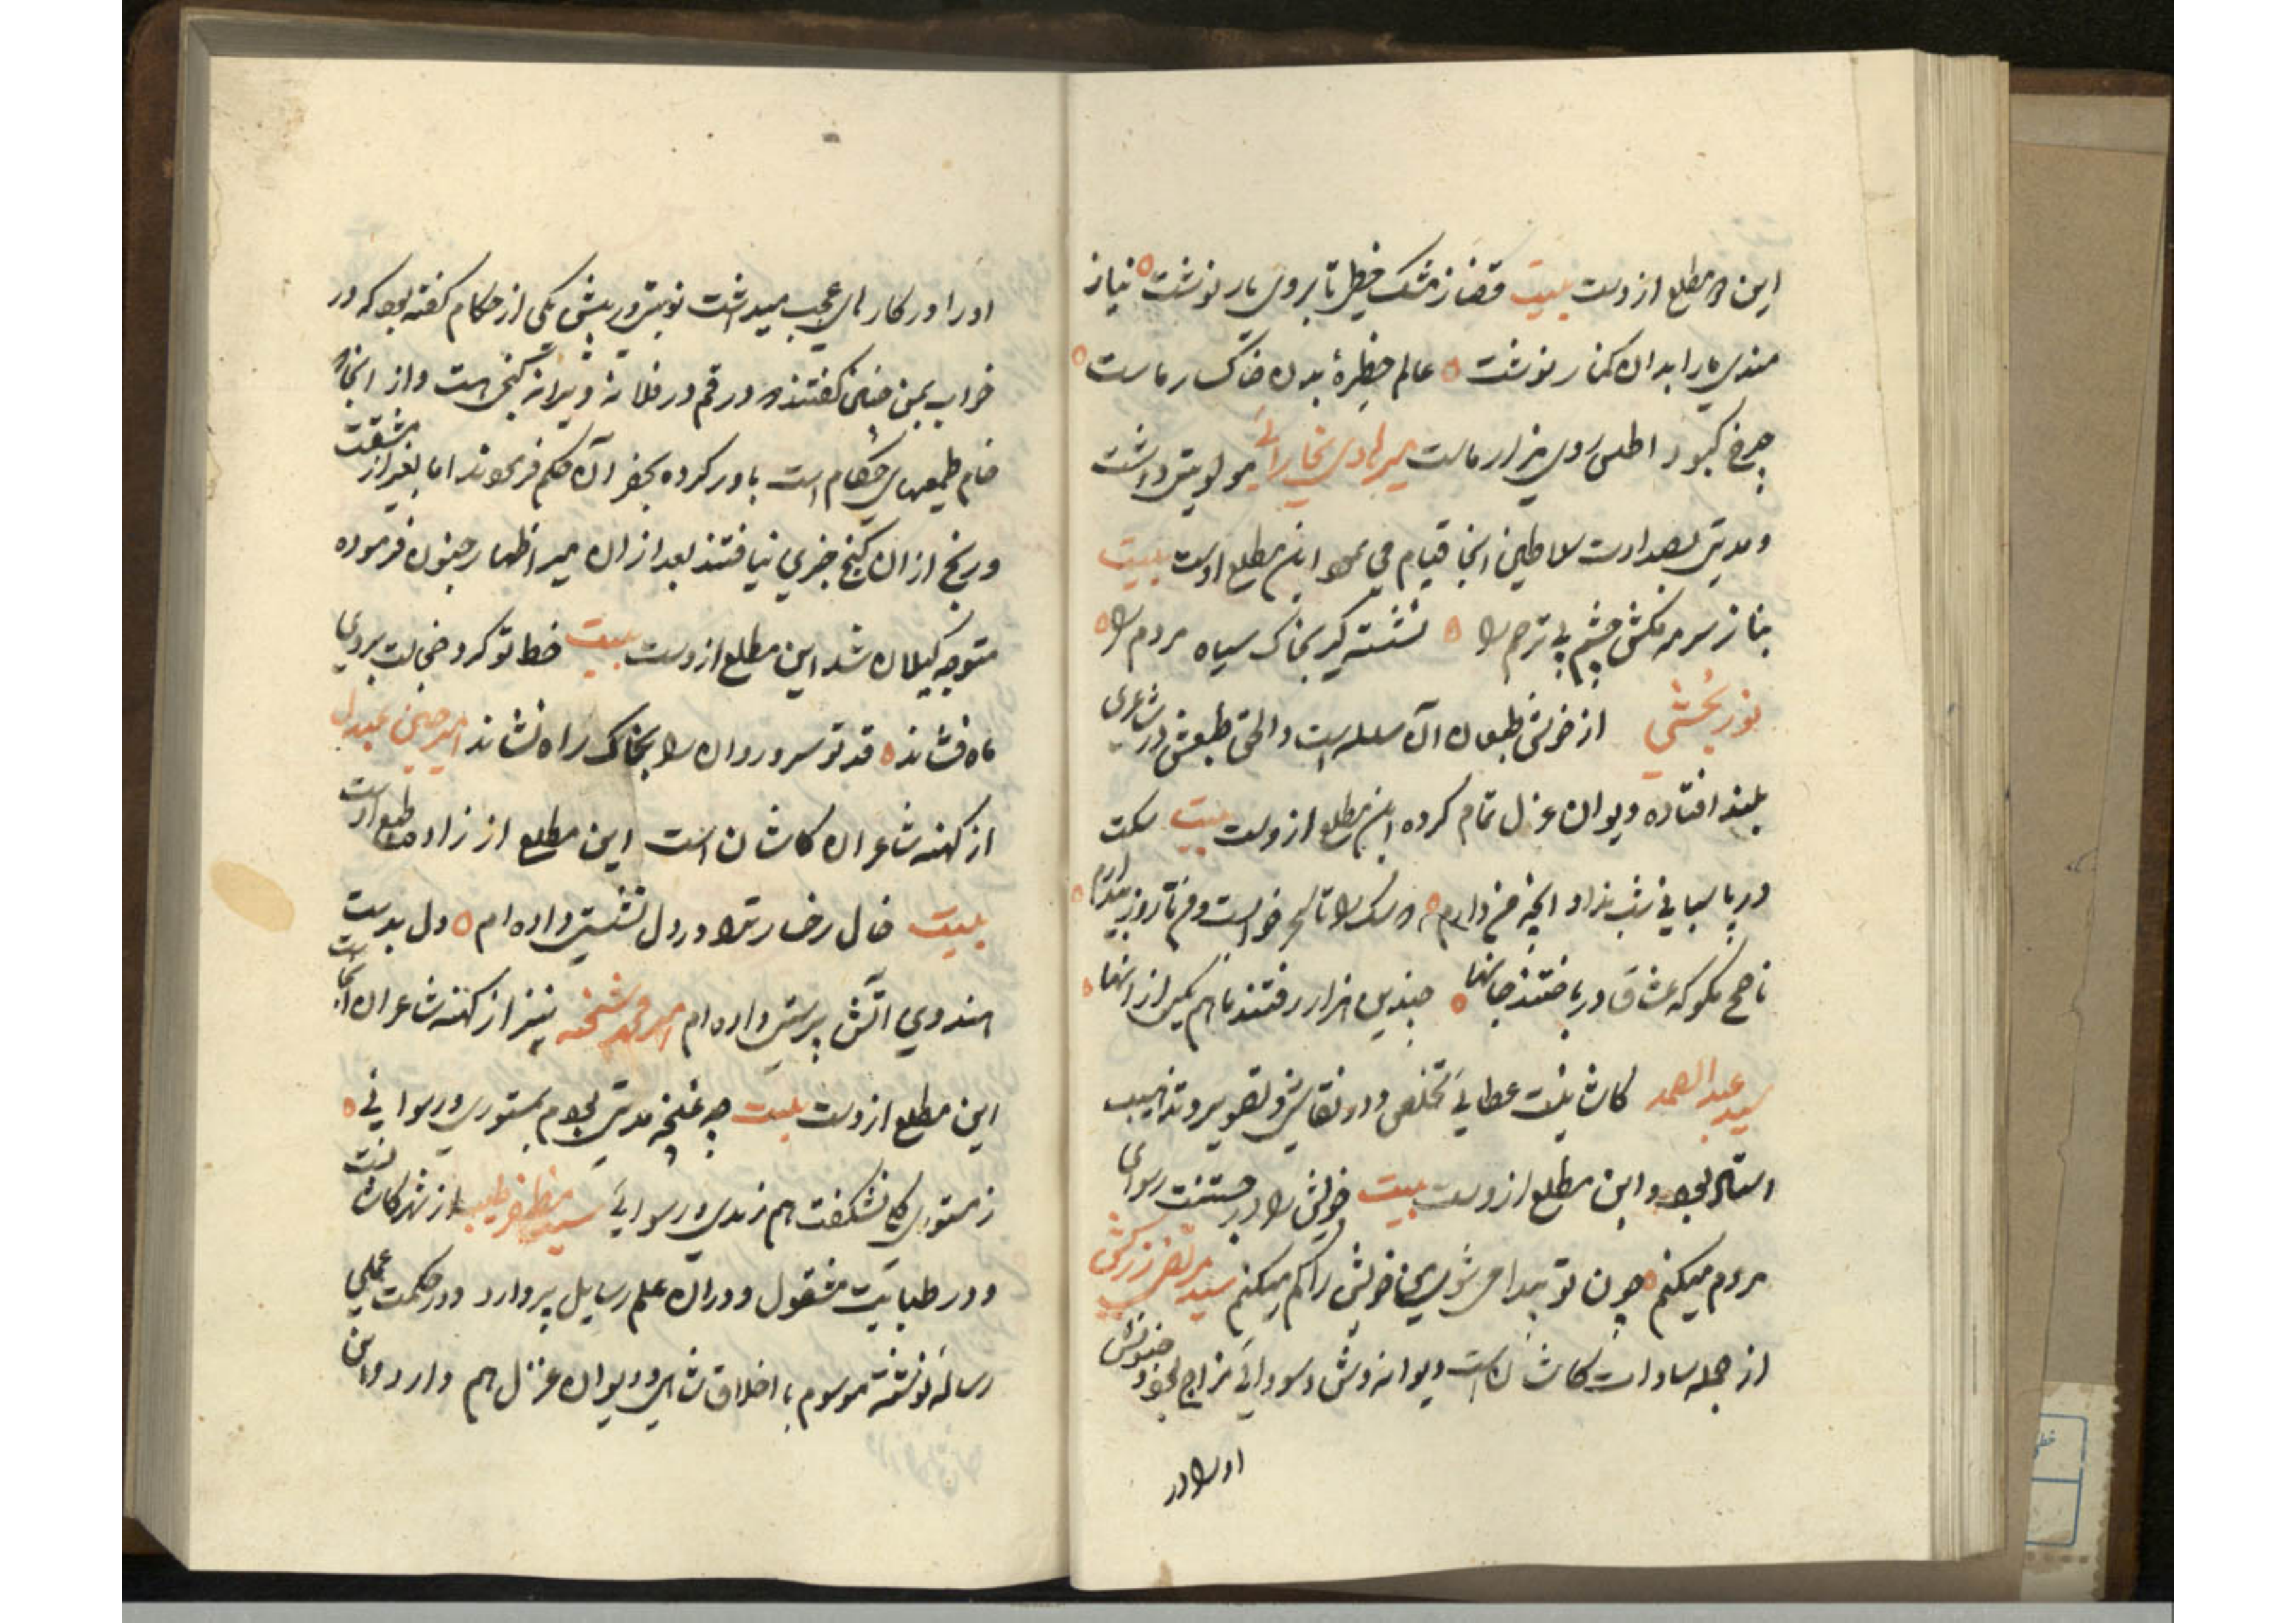 این دو مطلع ازوست بیت قضا ز مشک خطی تا بروی یار نوشت نیاز
مندی ما را بدان کنار نوشت عالم حظیرهٔ بدن خاکسار ماست
چرخ کبود اطلس روی مزار ماست میر هادی بخارائی مولویتی داشت
و مدتی بصدارت سلاطین آنجا قیام می نمود این مطلع اوست بیت
بناز سرمه مکش چشم بی ترحم را نشسته گیر بخاک سیاه مردم را
نوربخشی از خوش طبعان آن سلسله است والحق طبعش در شاعری
بلند افتاده دیوان غزل تمام کرده این مطلع ازوست بیت سکت
در پاسبانی شب ندارد آنچه من دارم که سگ را تا سحر خوابست و من تا روز بیدارم
ناصح مگو که عشاق در باختند جانها چندین هزار رفتند ما هم یکی از آنها
سید عبدالصمد کاشانیست عطائی تخلص و در نقاشی و تصویر و تذهیب
استاد بود و این مطلع ازوست بیت خویش را در جستنت رسوای
مردم میکنم چون تو پیدا می شوی من خویش را گم میکنم سید مرتضی زرکش
از جمله سادات کاشان است دیوانه وش و سودائی مزاج بود و جنونش
او را در
او را در کارهای عجب میداشت نوبتی در پیش یکی از حکام گفته بود که در
خواب بمن چنین گفتند که در قم در فلانه ویرانه گنجی هست و از آنجا که
خام طمعیهای حکام است باور کرده بحفر آن حکم فرمودند اما بغیر از مشقت
و رنج از آن گنج چیزی نیافتند بعد از آن میر اظهار جنون فرموده
متوجه گیلان شد این مطلع ازوست بیت خط تو گرد خجالت بروی
ماه فشاند قد تو سرو روان را بخاک راه نشاند میر حسین عبدل
از کهنه شاعران کاشان است این مطلع از زاده طبع اوست
بیت خال رخسار ترا در دل نشستی داده ام دل بدست
هندوی آتش پرستی داده ام میر محمد شحنه نیز از کهنه شاعران آنجاست
این مطلع ازوست بیت چو غنچه مدتی بودم بمستوری و رسوائی
ز مستوری گلی نشکفت هم رندی و رسوائی سید مظفر طبیب از شهر کاشانست
و در طبابت مشغول و در آن علم رسایل پردازد و در حکمت عملی
رساله نوشته موسوم با اخلاق شاهی و دیوان غزل هم دارد و این